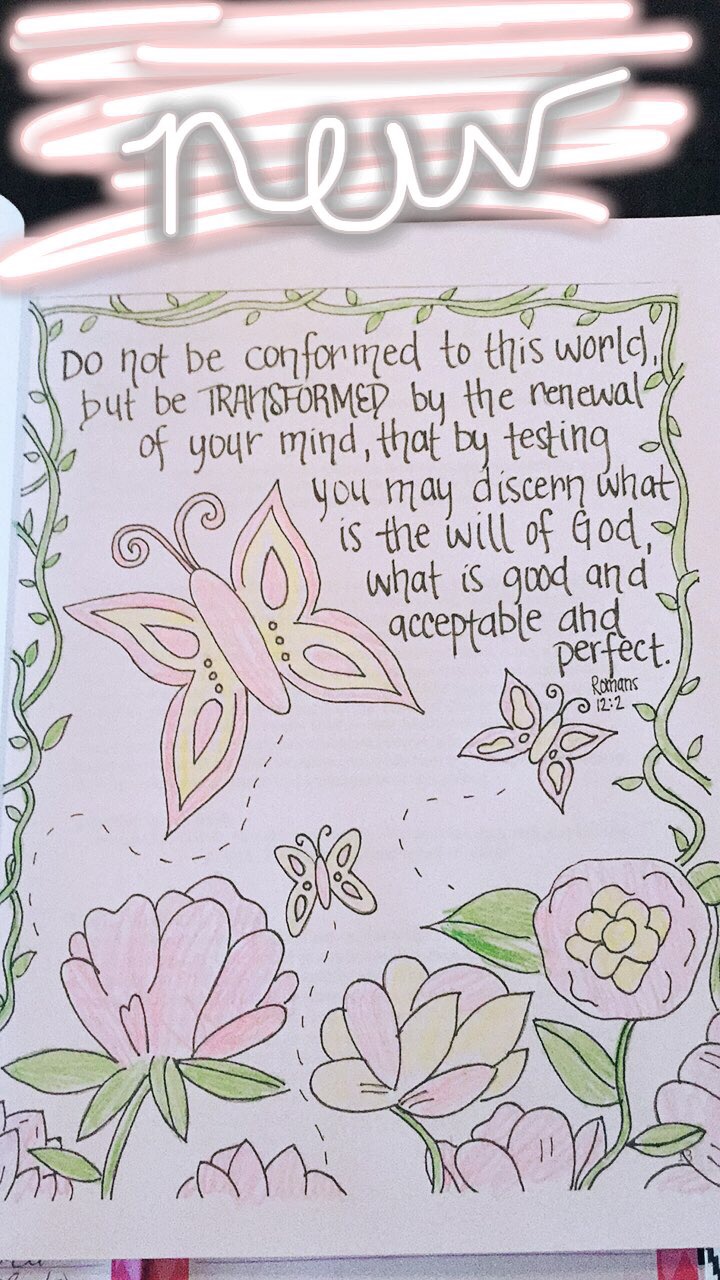 new
Do not be conformed to this world,
but be TRANSFORMED by the renewal
of your mind, that by testing
you may discern what
is the will of God,
what is good and
acceptable and
perfect.
Romans
12:2